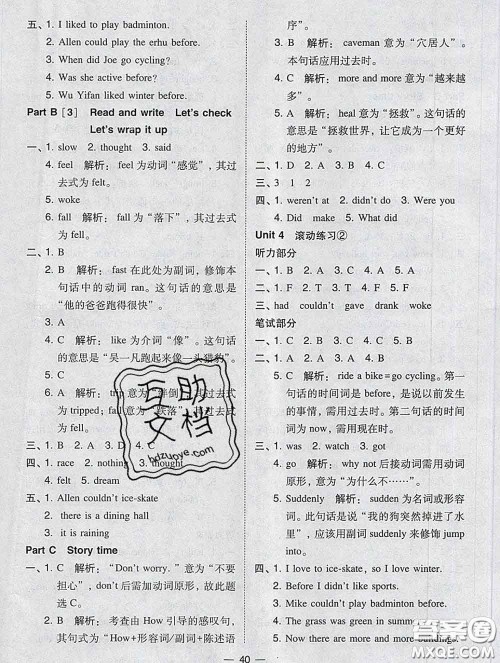 五、1. I liked to play badminton.
2. Allen could play the erhu before.
3. When did Joe go cycling?
4. Was she active before?
5. Wu Yifan liked winter before.
Part B [3] Read and write Let's check
Let's wrap it up
一、1. slow 2. thought 3. said
4. feel 解析：feel 为动词“感觉”，其过
去式为 felt。
5. woke
6. fall 解析：fall 为“落下”，其过去式
为 fell。
二、1. B
2. B 解析：fast 在此处为副词，修饰本
句中的动词 ran。这句话的意思是
“他的爸爸跑得很快”。
3. A
4. C 解析：like 为介词“像”。这句话
的意思是“吴一凡跑起来像一头猎豹”。
5. C
6. A 解析：trip 意为“绊倒”，其过去
式为 tripped；fall 意为“跌落”，过去式
为 fell。
三、1. B 2. D 3. A 4. C
四、1. race 2. nothing 3. thought
4. felt 5. dream
五、1. Allen couldn't ice-skate
2. there was no library
3. it is raining
Part C Story time
一、1. C 解析：“Don't worry.”意为“不要
担心”，don't 后需加动词原形，故此题
选 C。
2. B 解析：考查由 How 引导的感叹句，
其句式为“How+形容词/副词+陈述语
序”。
3. B 解析：caveman 意为“穴居人”。
本句话应用过去时。
4. C 解析：more and more 意为“越来越
多”。
5. A 解析：heal 意为“拯救”。这句话的
意思是“拯救世界，让它成为一个更好
的地方”。
二、1. B 2. D 3. A 4. C
三、3 1 2
四、1. weren't at 2. didn't do 3. Were you
4. Did, make 5. What did
Unit 4 滚动练习②
听力部分
一、1. B 2. A 3. C 4. A 5. A
二、1. T 2. F 3. T 4. F 5. F
三、had couldn't gave drank woke
笔试部分
一、1. A 2. A 3. C 4. B 5. B
二、1. A 2. D 3. B 4. C
5. C 解析：ride a bike=go cycling。第一
句话的时间词是 before，是说以前发生
的事情，需用过去时。第二句话的时间
词为 now，需用现在时。
三、1. was 2. watch 3. got
4. go 解析：why not 后接动词需用动词
原形，意为“为什么不……”。
5. Suddenly 解析：sudden 为名词或形容
词。此句话是说“我的狗突然掉进了水
里”，应用副词 suddenly 修饰 jump
into。
四、1. I love to ice-skate, so I love winter.
2. Before I didn't like exercise.
3. Mike couldn't go cycling before.
4. The grass was green in summer.
5. Now there are more and more buildings.
40
互助
文档
hdzuoye.com
答案圈
MXQE.COM